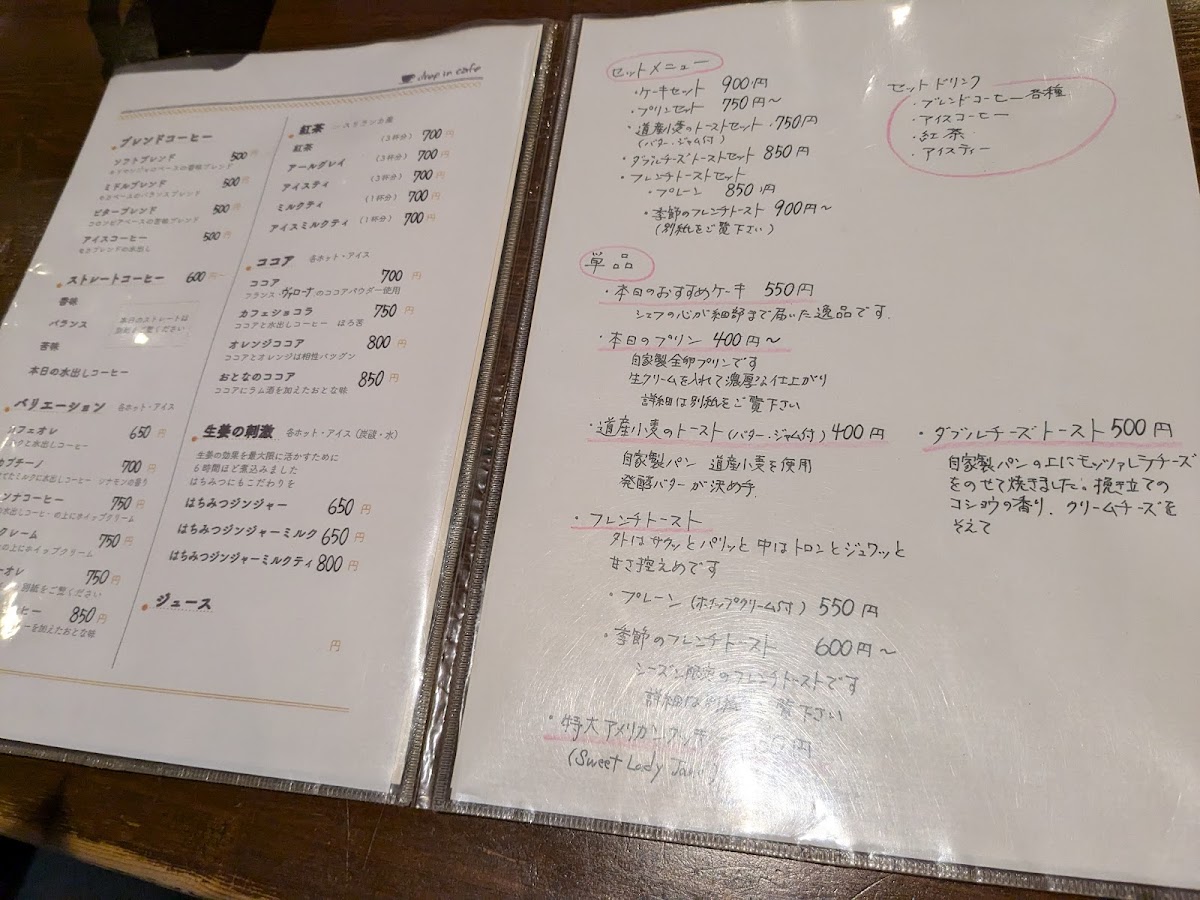 drop in cafe
ブレンドコーヒー
ソフトブレンド 500円
ミドルブレンド 500円
モカベースのバランスブレンド
ビターブレンド 500円
コロンビアベースの苦味ブレンド
アイスコーヒー 500円
モカブレンドの水出し
ストレートコーヒー 600円～
香味
バランス
苦味
本日のストレートは
別紙をご覧ください
本日の水出しコーヒー
バリエーション 各ホット・アイス
カフェオレ 650円
ルクと水出しコーヒー
カプチーノ 700円
てたミルクに水出しコーヒー シナモンの香り
ンナコーヒー 750円
水出しコーヒーの上にホイップクリーム
クレーム 750円
の上にホイップクリーム
ーオレ 750円
別紙をご覧ください
ヒー 850円
ーを加えたおとな味
紅茶 ―スリランカ産
紅茶 (3杯分) 700円
アールグレイ (3杯分) 700円
アイスティ (3杯分) 700円
ミルクティ (1杯分) 700円
アイスミルクティ (1杯分) 700円
ココア 各ホット・アイス
ココア 700円
フランス・ヴァローナのココアパウダー使用
カフェショコラ 750円
ココアと水出しコーヒー ほろ苦
オレンジココア 800円
ココアとオレンジは相性バツグン
おとなのココア 850円
ココアにラム酒を加えたおとな味
生姜の刺激 各ホット・アイス(炭酸・水)
生姜の効果を最大限に活かすために
6時間ほど煮込みました
はちみつにもこだわりを
はちみつジンジャー 650円
はちみつジンジャーミルク 650円
はちみつジンジャーミルクティ 800円
ジュース
円
セットメニュー
・ケーキセット 900円
・プリンセット 750円～
・道産小麦のトーストセット・750円
(バター・ジャム付)
・ダブルチーズトーストセット 850円
・フレンチトーストセット
・プレーン 850円
・季節のフレンチトースト 900円～
(別紙をご覧下さい)
セットドリンク
・ブレンドコーヒー各種
・アイスコーヒー
・紅茶
・アイスティー
単品
・本日のおすすめケーキ 550円
シェフの心が細部まで届いた逸品です.
・本日のプリン 400円～
自家製全卵プリンです
生クリームを入れて濃厚な仕上がり
詳細は別紙をご覧下さい
・道産小麦のトースト(バター・ジャム付) 400円
自家製パン 道産小麦を使用
発酵バターが決め手.
・ダブルチーズトースト 500円
自家製パンの上にモッツァレラチーズ
をのせて焼きました。挽き立ての
コショウの香り. クリームチーズを
そえて
・フレンチトースト
外はサクッとパリッと 中はトロンとジュワッと
甘さ控えめです
・プレーン(ホイップクリーム付) 550円
・季節のフレンチトースト 600円～
シーズン限定のフレンチトーストです
詳細は別紙ご覧下さい
・特大アメリカンクッキ 円
(Sweet Lady